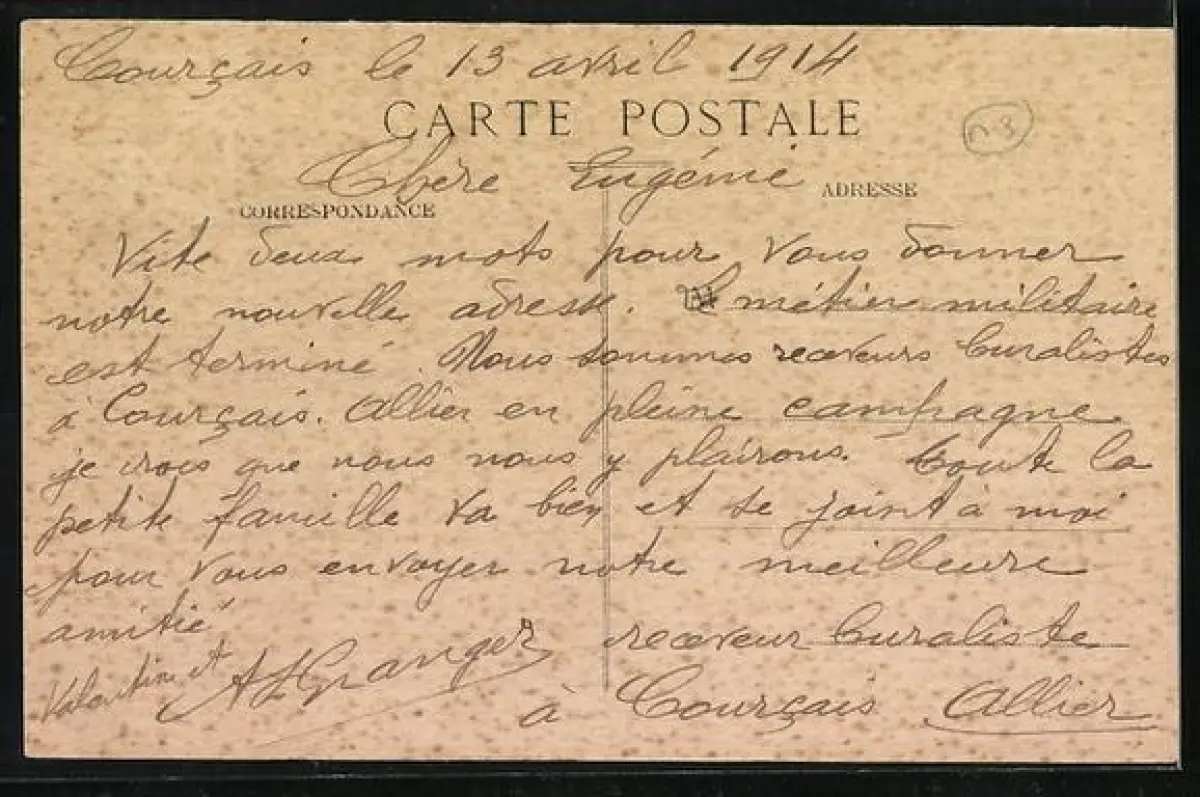 Courçais le 13 avril 1914
CARTE POSTALE
n 8
Chère Eugénie
ADRESSE
CORRESPONDANCE
Vite deux mots pour vous donner
notre nouvelle adresse. Le métier militaire
est terminé. Nous sommes receveurs buralistes
à Courçais. Allier en pleine campagne
je crois que nous nous y plairons. Toute la
petite famille va bien et se joint à moi
pour vous envoyer notre meilleure
amitié
Valentine et A Granger receveur buraliste
à Courçais Allier